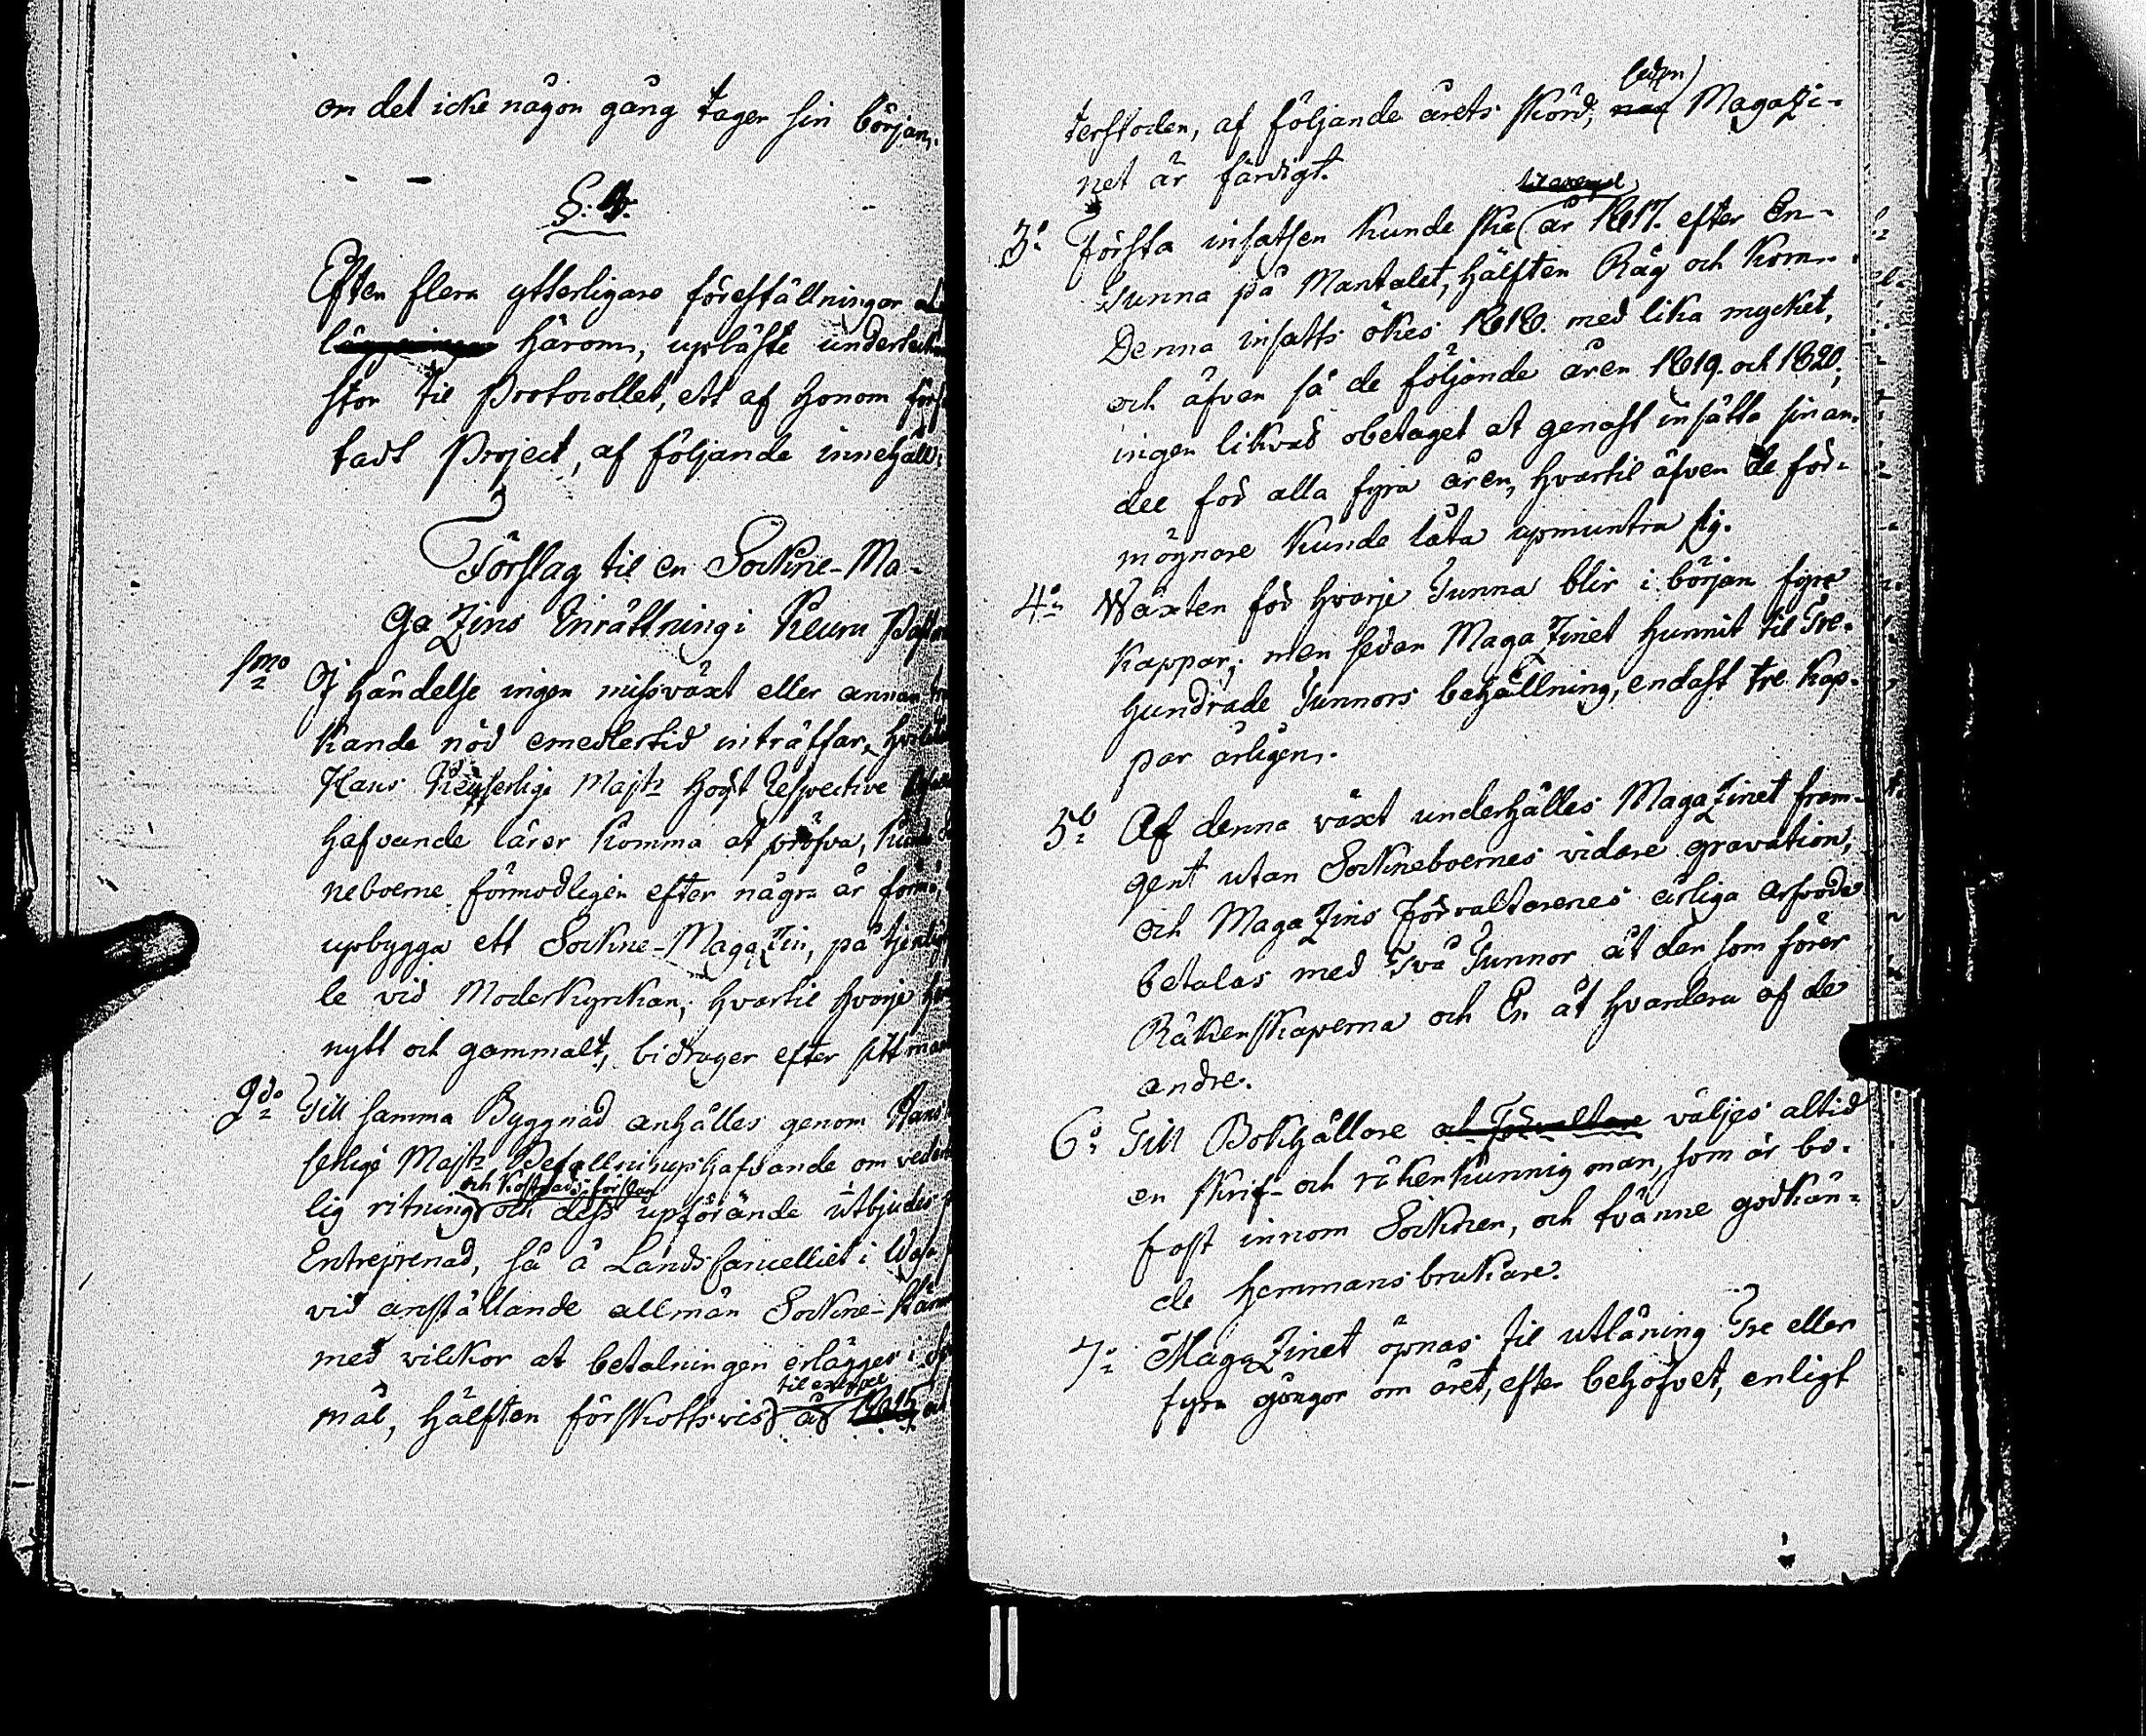 om det icke någon gång tager sin början.
§. 4.
Efter flera ytterligare föreställningar
härom, upläste
til Protocollet, ett af honom
tadt Project, af följande innehåll:
Förslag til en Sockne-Ma-
gaZins Inrättning i Keuru
1mo I händelse ingen missväxt eller annan
kande nöd emedlertid inträffar,
Hans Keyserlige Majts högt Respective
hafvande lärer komma at pröfva,
neboerne förmodligen efter några år
upbygga ett Sockne-MagaZin, på
le vid Moderkyrkan; hvartil hvarje
nytt och gammalt, bidrager efter sitt
2do Till samma Byggnad anhålles genom Hans
serlige Majts Befallningshafvande om
och kostnads förslag
lig ritning och dess upförande utbjudes
Entreprenad, så å Lands Cancelliet i Wasa
vid anställande allmän Sockne-
med vilckor at betalningen erlägges i
til exempel
mål, hälften förskottsvis år 1815
sedan
terstoden, af följande årets skörd, när Magazi-
net är färdigt.
til exempel
3o Första insatsen kunde ske år 1817. efter En
Tunna på Mantalet, hälften Råg och Korn.
Denna insatts ökes 1818. med lika mycket,
och äfven så de följande åren 1819. och 1820;
ingen likväl obetaget at genast insätta sin an-
del för alla fyra åren, hvartil äfven de för-
mögnare kunde låta upmuntra sig.
4o Wäxten för hvarje Tunna blir i början fyra
kappar; men sedan MagaZinet hunnit til Tre-
hundrade Tunnors behållning, endast tre kap-
par årligen.
5o Af denna växt underhålles MagaZinet fram-
gent utan Sockneboernes vidare gravation,
och MagaZins förvaltarenes årliga arfvode
betalas med Två Tunnor åt den som förer
Räkenskaperna och En åt hvardera af de
andre.
6o Till Bokhållare och Förvaltare väljes altid
en skrif- och räkenkunnig man, som är bo-
fast innom Socknen, och tvänne godkän-
de hemmansbrukare.
7o MagaZinet öpnas til utlåning Tre eller
fyra gånger om året, efter behofvet, enligt